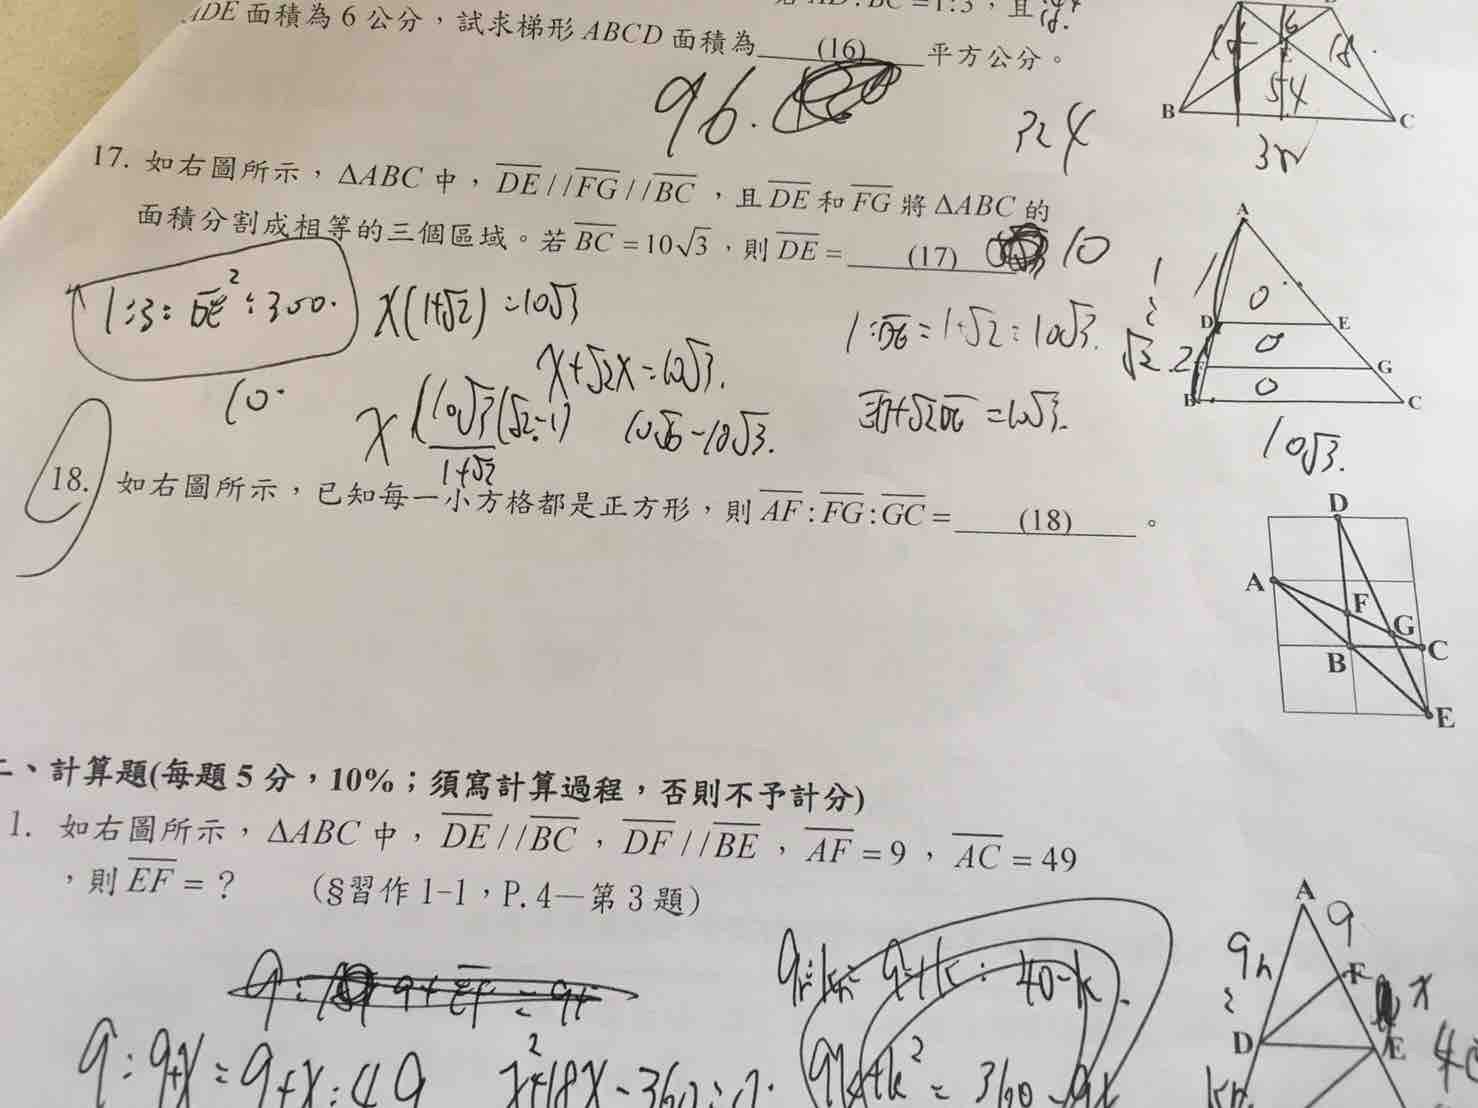 ADE 面積為 6 公分，試求梯形 ABCD 面積為 (16) 平方公分。
96.
324
B
C
18
6
E
18
54
3r
17. 如右圖所示，ΔABC 中，DE//FG//BC，且 DE 和 FG 將 ΔABC 的
面積分割成相等的三個區域。若 BC = 10√3，則 DE = (17) 10
1:3 = DE² : 300.
10.
x(1+√2) = 10√3
x+√2x = 10√3.
x (10√3(√2-1)
1+√2
10√6-10√3.
1:DG = 1+√2 : 10√3.
DG+√2DG = 10√3.
A
D
E
G
B
C
0
0
0
1
√2
2
10√3.
18. 如右圖所示，已知每一小方格都是正方形，則 AF : FG : GC = (18) 。
D
A
F
G
B
C
E
二、計算題(每題 5 分，10%；須寫計算過程，否則不予計分)
1. 如右圖所示，ΔABC 中，DE//BC，DF//BE，AF = 9，AC = 49
，則 EF = ？ (§習作 1-1，P.4－第 3 題)
9:9+x = 9+x:49
x²+18x-360=0.
9+k : 40-k.
9k+k² = 360-9k
A
9
9h
F
x
D
E